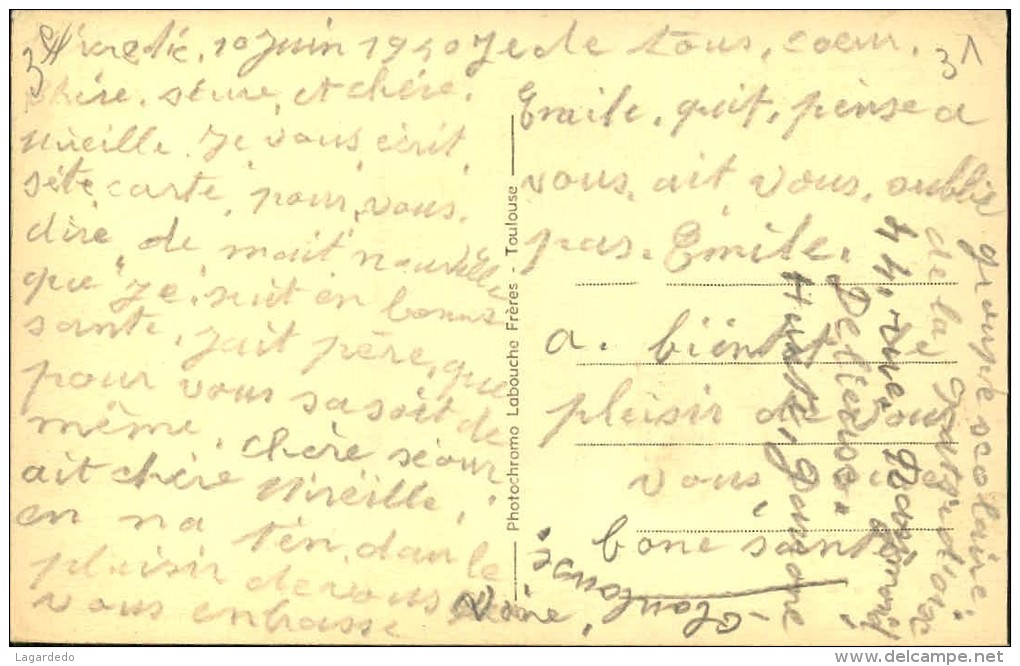 10 Juin 1940
chère, seure, et chère,
Mireille. Je vous écrit,
séte carte, pour, vous,
dire, de mait nouvélle
que Je, suit en bonne
sante, jait père, que
pour vous sa soit de
même, chère séour
ait chère Mireille,
en na ten, dan le
plaisir de vous
vous enbrasse
Je de tous, coeur.
Emile, quit, pense a
vous, ait vous, oublie
pas. Émile.
a. bientot le
plaisir de vous
vous
bone santé
Photochromo Labouche Frères - Toulouse
groupe scolaire
de la
44, rue,
Toulouse
31
Lagardedo
www.delcampe.net